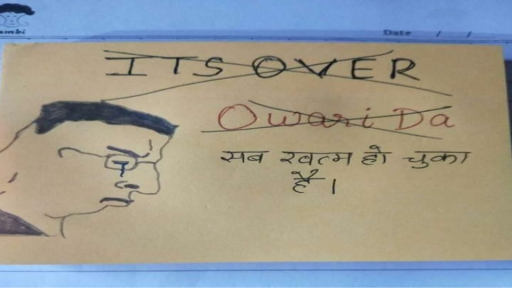 Date / /
ITS OVER
Owari Da
सब खत्म हो चुका
है।